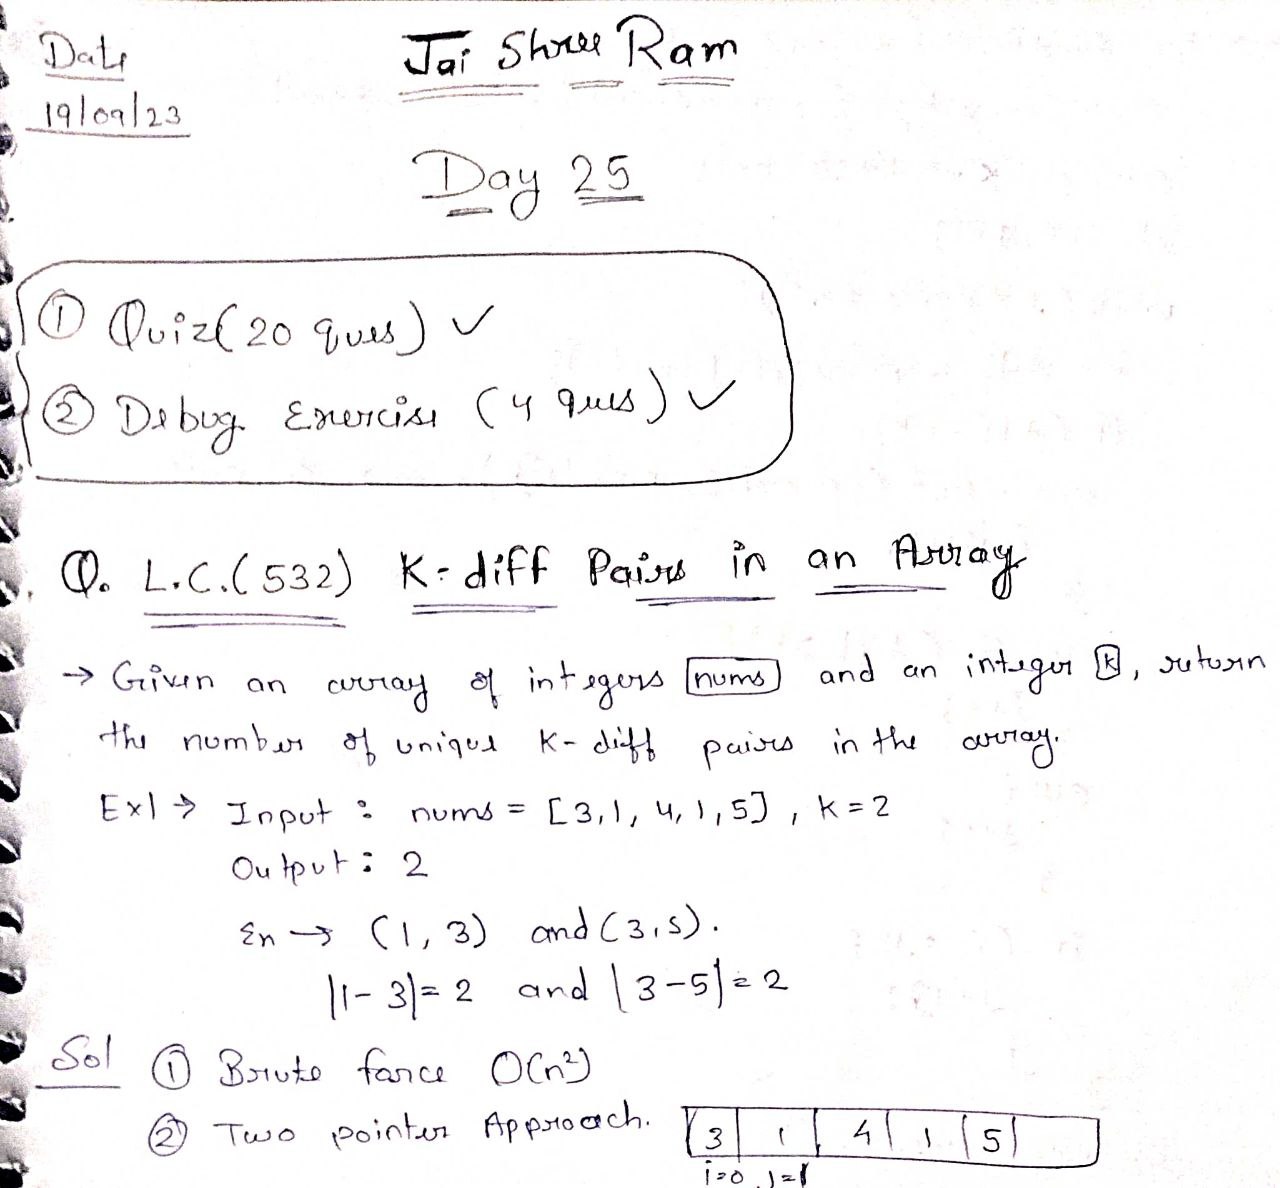 Date
Jai Shree Ram
19/09/23
Day 25
① Quiz(20 ques) ✓
② Debug Exercise (4 ques) ✓
Q. L.C.(532) K-diff Pairs in an Array
→ Given an array of integers nums and an integer k, return
the number of unique K-diff pairs in the array.
Ex1 → Input : nums = [3,1,4,1,5], K=2
Output : 2
Ex → (1,3) and (3,5).
|1-3|=2 and |3-5|=2
Sol ① Brute force O(n²)
② Two pointer Approach. 3 1 4 1 5
i=0 j=1